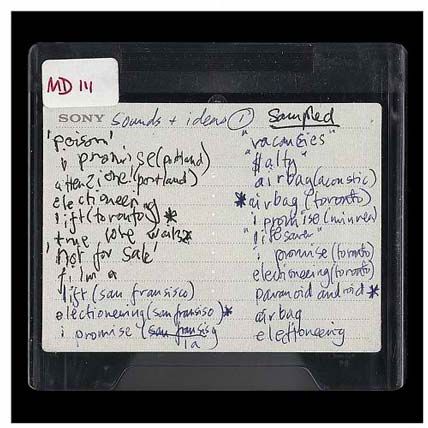 MD 111
SONY Sounds + ideas ① Sampled
'poison'
i promise (portland)
attenzione! (portland)
electioneering
lift (toronto) *
true love waits *
'not for sale'
film a
lift (san fransisco)
electioneering (san fransisco) *
i promise (san fransis
la)
"vacancies"
airbag (acoustic)
* airbag (toronto)
i promise
"lifesaver"
i promise (toronto)
electioneering (toronto)
paranoid android *
airbag
electioneering